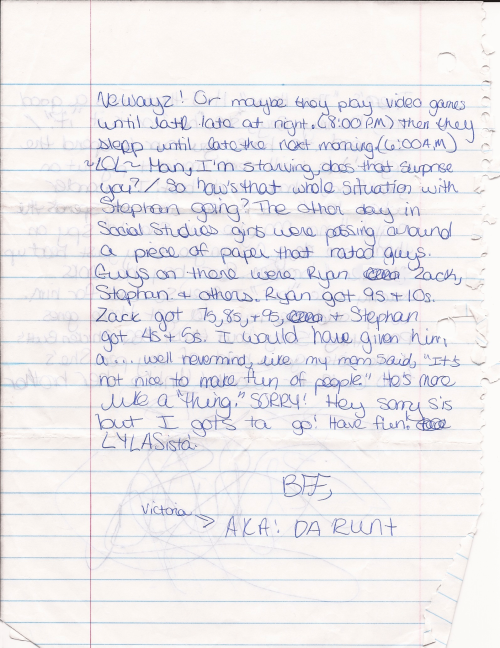 NeWayz! Or maybe they play video games
until late late at night. (8:00 PM) then they
sleep until late the next morning. (6:00 AM)
~LOL~ Man, I'm starving, does that surprise
you? / So how's that whole situation with
Stephan going? The other day in
Social Studies girls were passing around
a piece of paper that rated guys.
Guys on there were Ryan Zack,
Stephan + others. Ryan got 9s + 10s.
Zack got 7s, 8s, + 9s, + Stephan
got 4s + 5s. I would have given him,
a... well nevermind, like my mom said, "It's
not nice to make fun of people." He's more
like a "thing." SORRY! Hey sorry sis
but I gots ta go! Have fun!
LYLASista.
BFF,
Victoria
AKA: DA RUnt